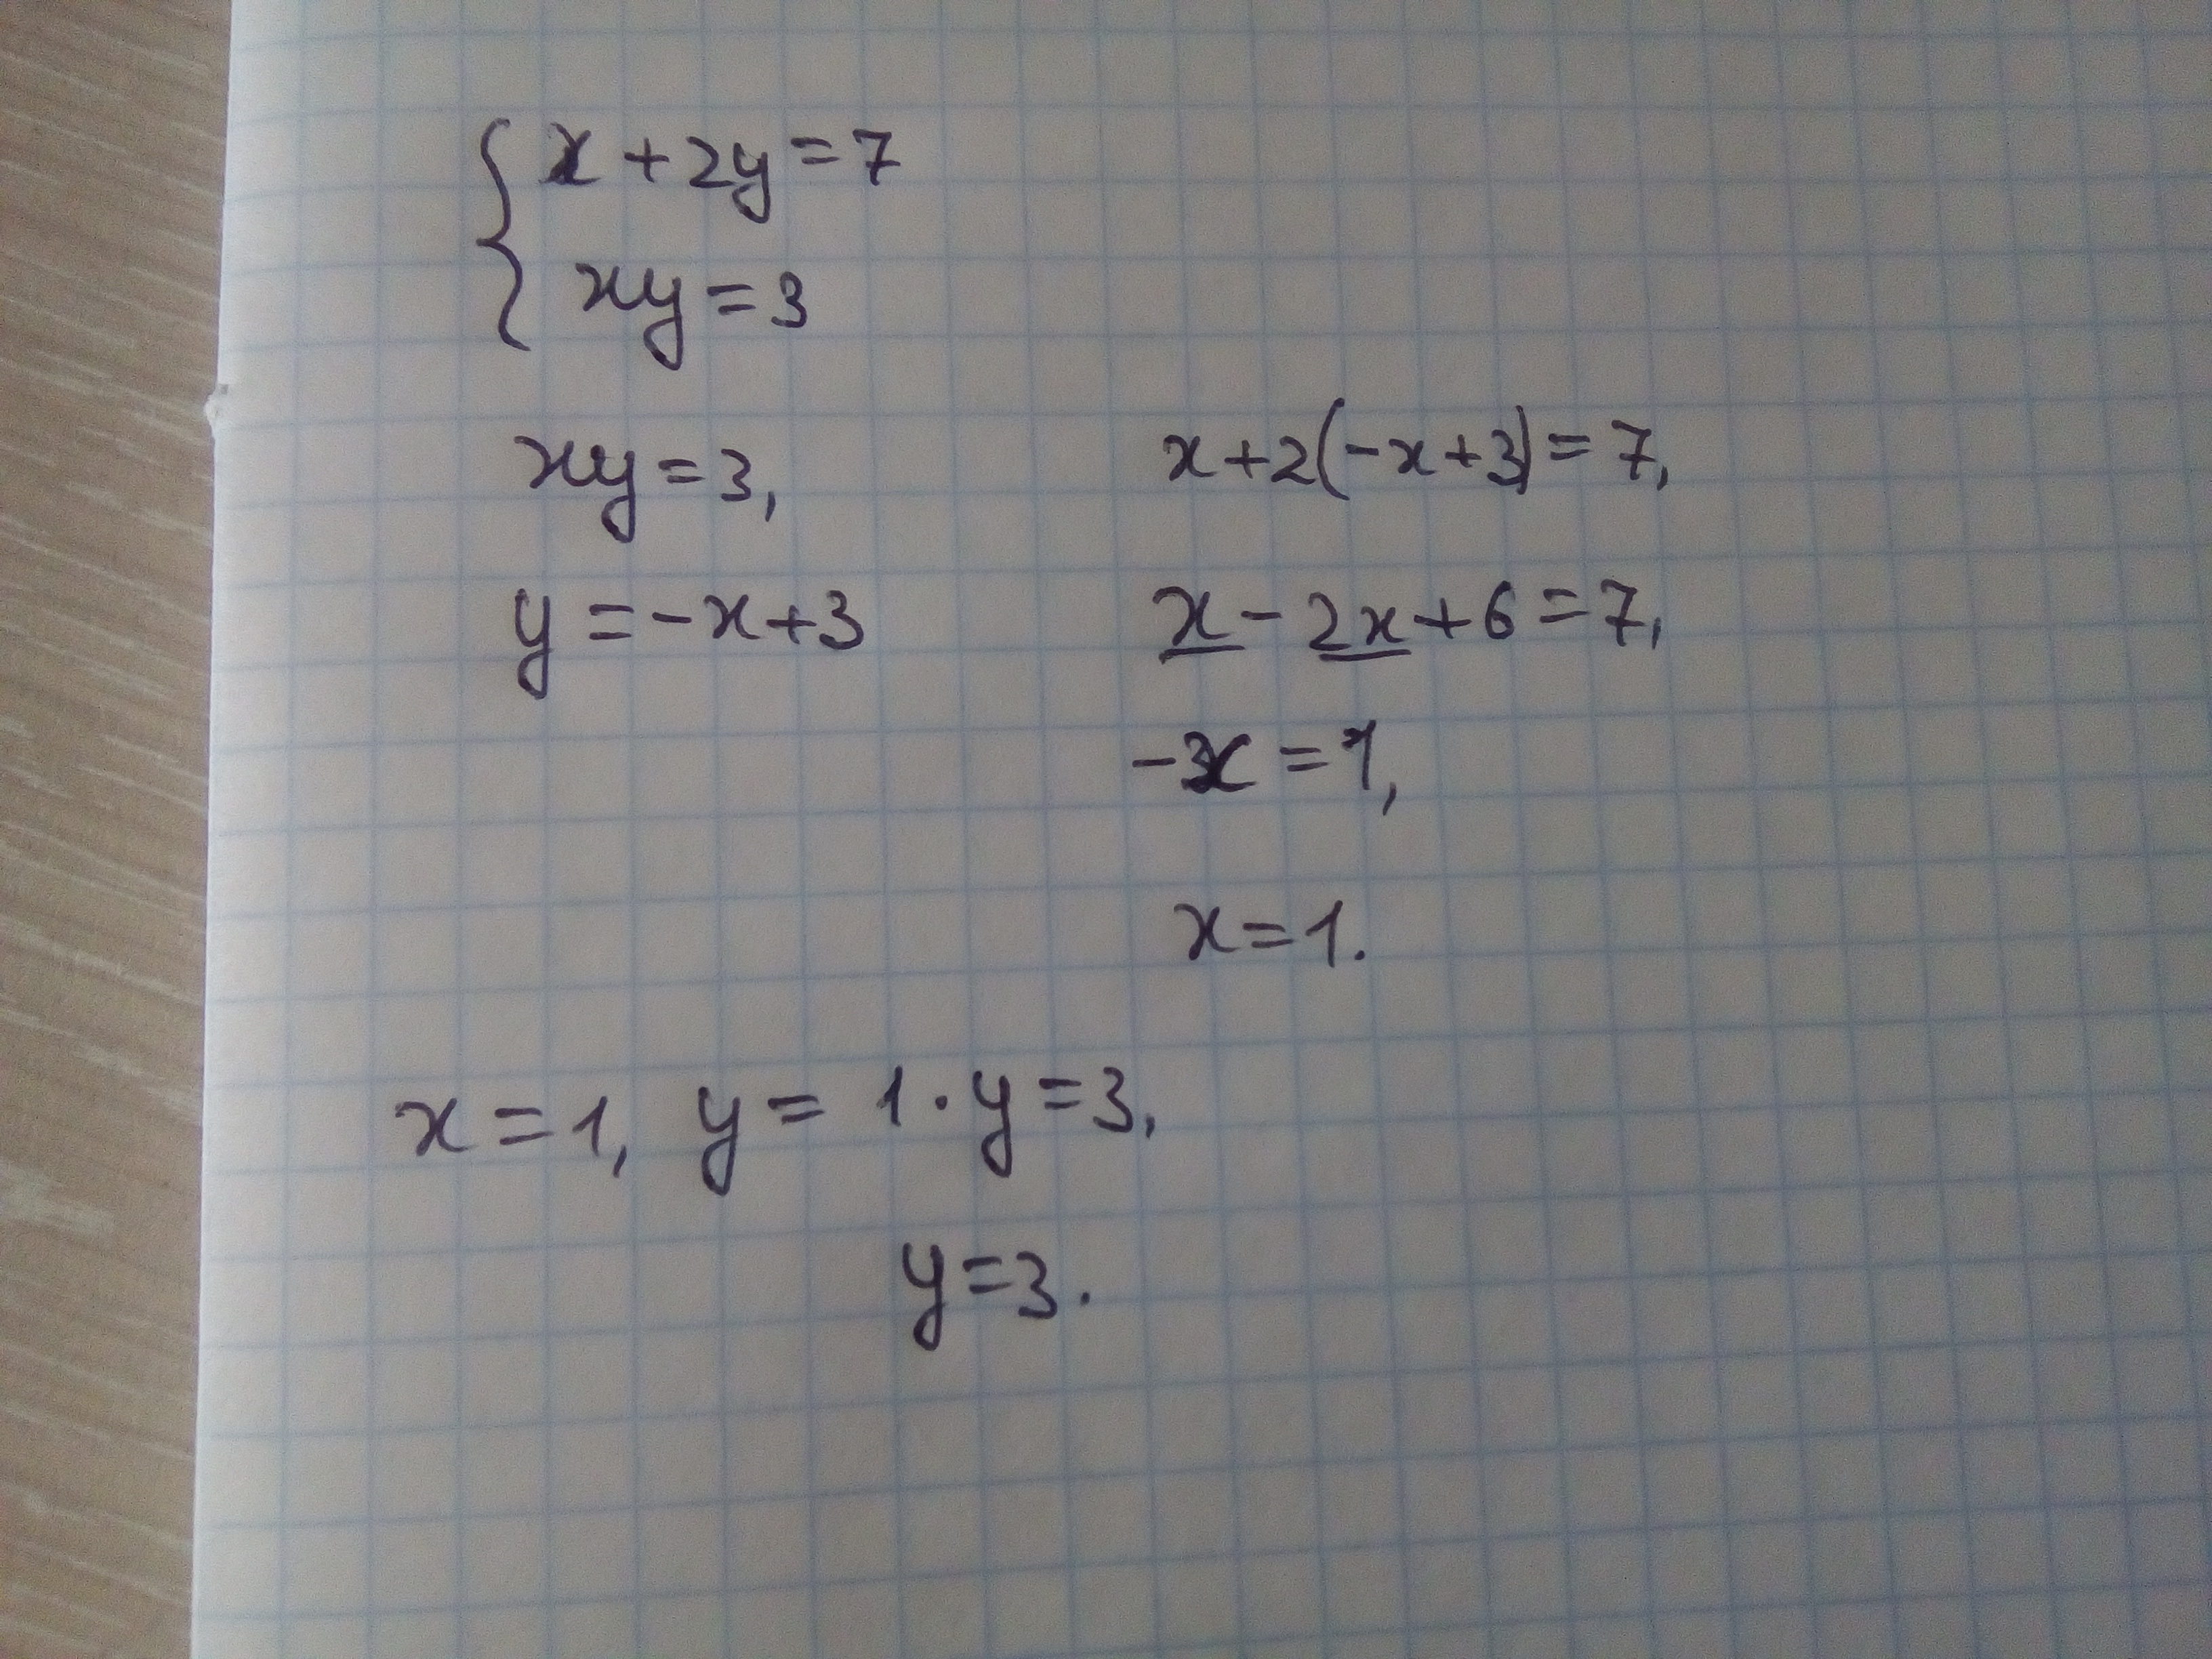 { x + 2y = 7
xy = 3
xy = 3,
y = -x+3
x+2(-x+3) = 7,
x - 2x + 6 = 7,
-3x = 1,
x = 1.
x = 1, y = 1 · y = 3,
y = 3.